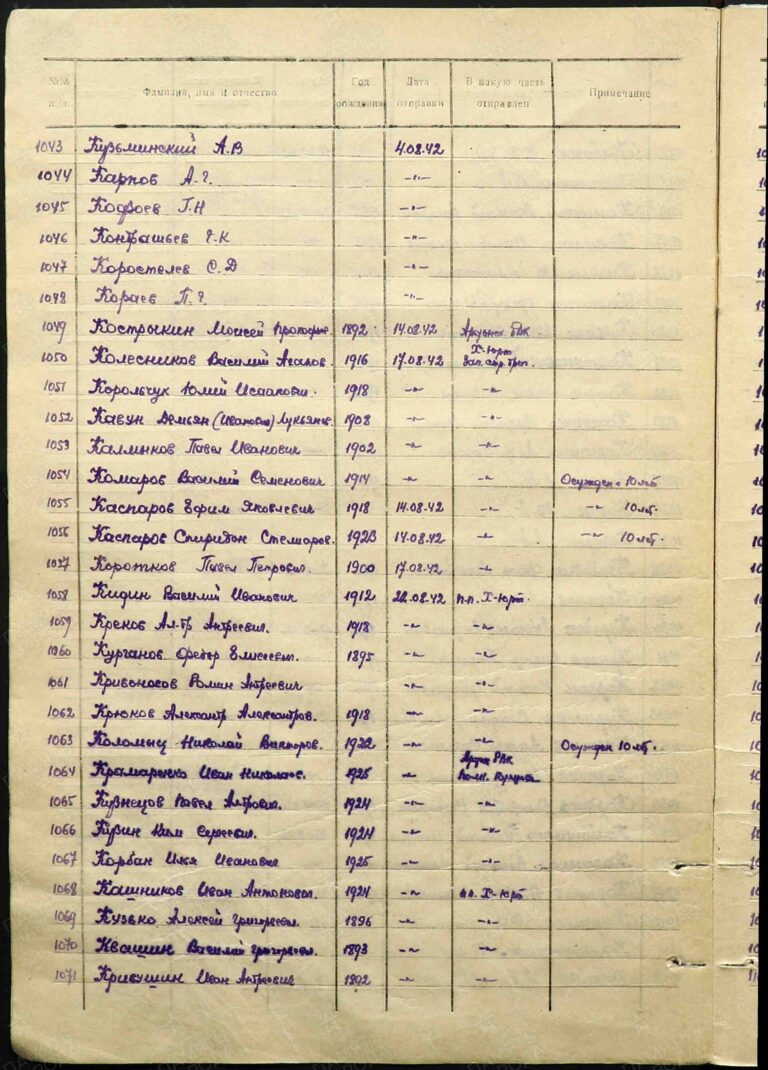 №№ п/п. Фамилия, имя и отчество Год рождения Дата отправки В какую часть отправлен Примечание
1043 Кузьминский А.В 4.08.42
1044 Карпов А.Г. -"-
1045 Кодзоев Г.Н -"-
1046 Кондрашьев Г.К -"-
1047 Коростелев С.Д -"-
1048 Кораев П.Г. -"-
1049 Кострыкин Моисей Прокофье 1892 14.08.42 РВК
1050 Колесников Василий Агапов. 1916 17.08.42 Х-Юрт Зап. стр. бриг.
1051 Корольчук Юлий Исаакович. 1918 -"- -"-
1052 Кавун Демьян (Иванович) Лукьянов. 1908 -"- -"-
1053 Калинков Павел Иванович 1902 -"- -"-
1054 Комаров Василий Семенович 1914 -"- -"- Осужден 10 лет
1055 Каспаров Ефим Яковлевич 1918 14.08.42 -"- -"- 10 лет.
1056 Каспаров Спиридон 1923 14.08.42 -"- -"- 10 лет.
1057 Коротков Павел Петрович. 1900 17.08.42 -"-
1058 Кидин Василий Иванович 1912 22.08.42 п.п. Х-Юрт.
1059 Креков Ал-др Андреевич. 1918 -"- -"-
1060 Курганов Федор Елисеевич. 1895 -"- -"-
1061 Кривоносов Роман Андреевич -"- -"-
1062 Крюков Александр Александров. 1918 -"- -"-
1063 Коломиец Николай Викторов. 1922 -"- -"- Осужден 10 лет.
1064 Крамаренко Иван Николаев. 1925 -"- РВК
1065 Кузнецов Павел 1924 -"- -"-
1066 Курин Ким Сергеевич. 1924 -"- -"-
1067 Корбан Илья Иванович 1925 -"- -"-
1068 Кашников Иван Антонович. 1924 -"- п.п. Х-Юрт
1069 Кузько Алексей Григорьевич. 1896 -"- -"-
1070 Квашин Василий Григорьевич. 1893 -"- -"-
1071 Кривушин Иван Андреевич 1892 -"- -"-